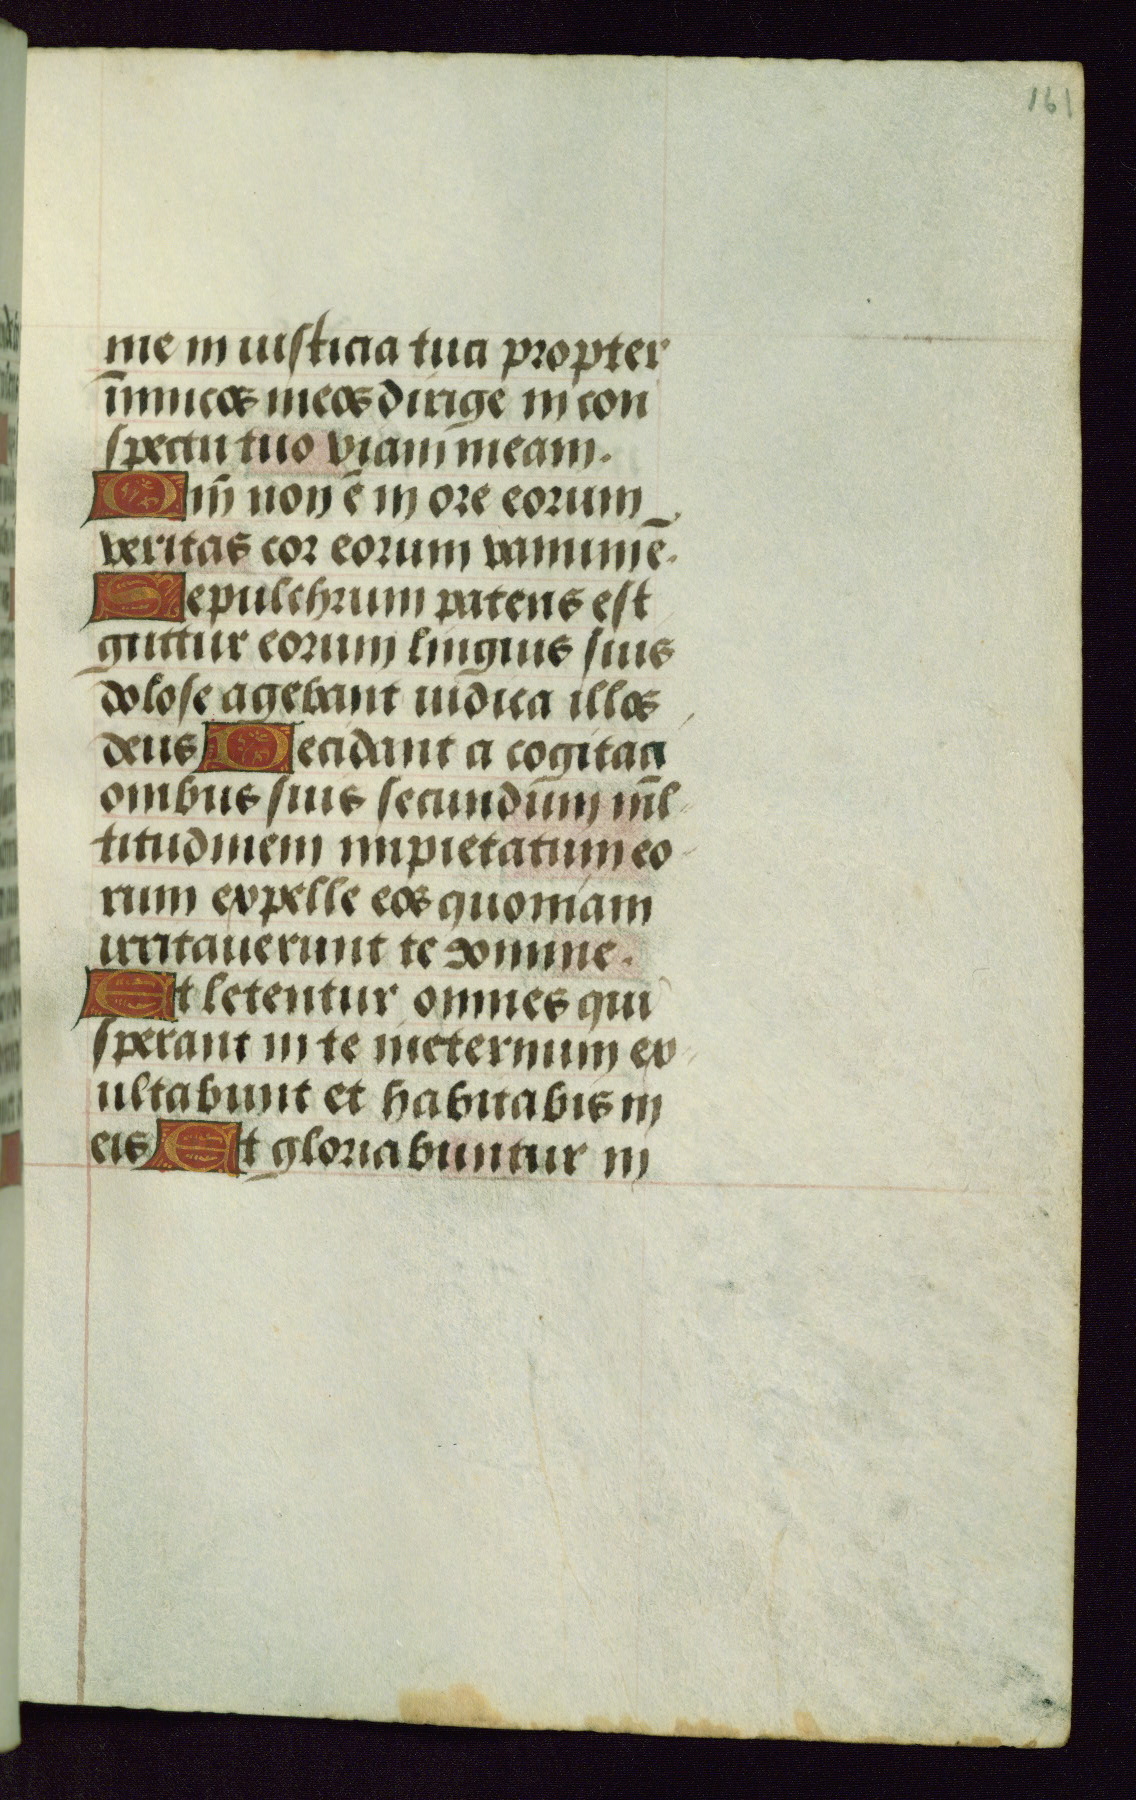 161
me in iusticia tua propter
īimicos meos dirige in con
spectu tuo viam meam.
Qm̄ non ē in ore eorum
veritas cor eorum vanum ē.
Sepulchrum patens est
guttur eorum linguis suis
dolose agebant iudica illos
deus Decidant a cogitaci
onibus suis secundūm ml̄
titudinem impietatum eo
rum expelle eos quoniam
irritauerunt te domine.
Et letentur omnes qui
sperant in te ineternum ex
ultabunt et habitabis in
eis Et gloriabuntur in